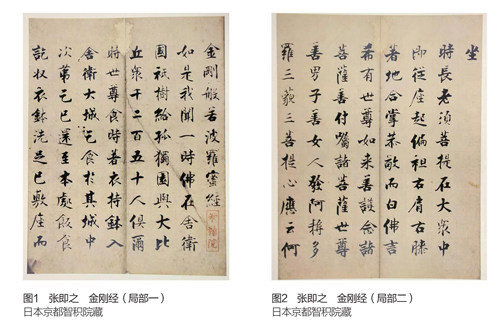 金剛般若波羅蜜經
如是我聞一時佛在舍衛
國祇樹給孤獨園與大比
丘衆千二百五十人俱爾
時世尊食時著衣持鉢入
舍衛大城乞食於其城中
次第乞已還至本處飯食
訖收衣鉢洗足已敷座而
智積院
图1 张即之 金刚经（局部一）
日本京都智积院藏
坐
時長老須菩提在大衆中
即從座起偏袒右肩右膝
著地合掌恭敬而白佛言
希有世尊如來善護念諸
菩薩善付囑諸菩薩世尊
善男子善女人發阿耨多
羅三藐三菩提心應云何
图2 张即之 金刚经（局部二）
日本京都智积院藏